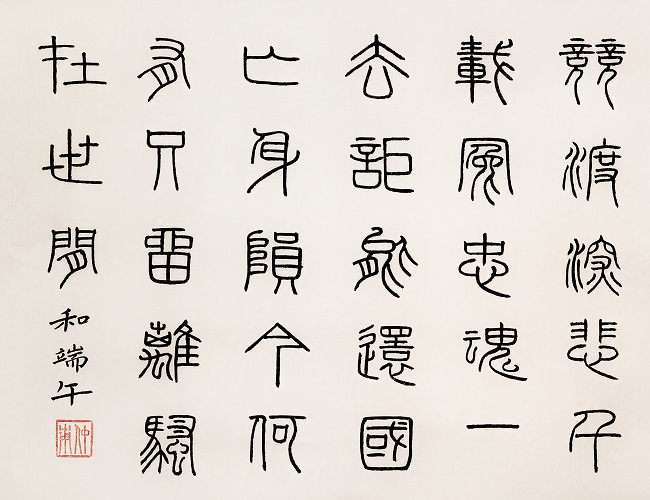 競渡深悲千
載冤忠魂一
去詎能還國
亡身隕今何
有只留離騷
在世間
和端午